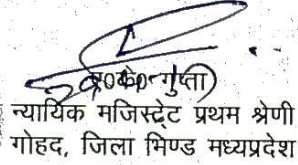 ए0के0 गुप्ता)
न्यायिक मजिस्ट्रेट प्रथम श्रेणी
गोहद, जिला भिण्ड मध्यप्रदेश